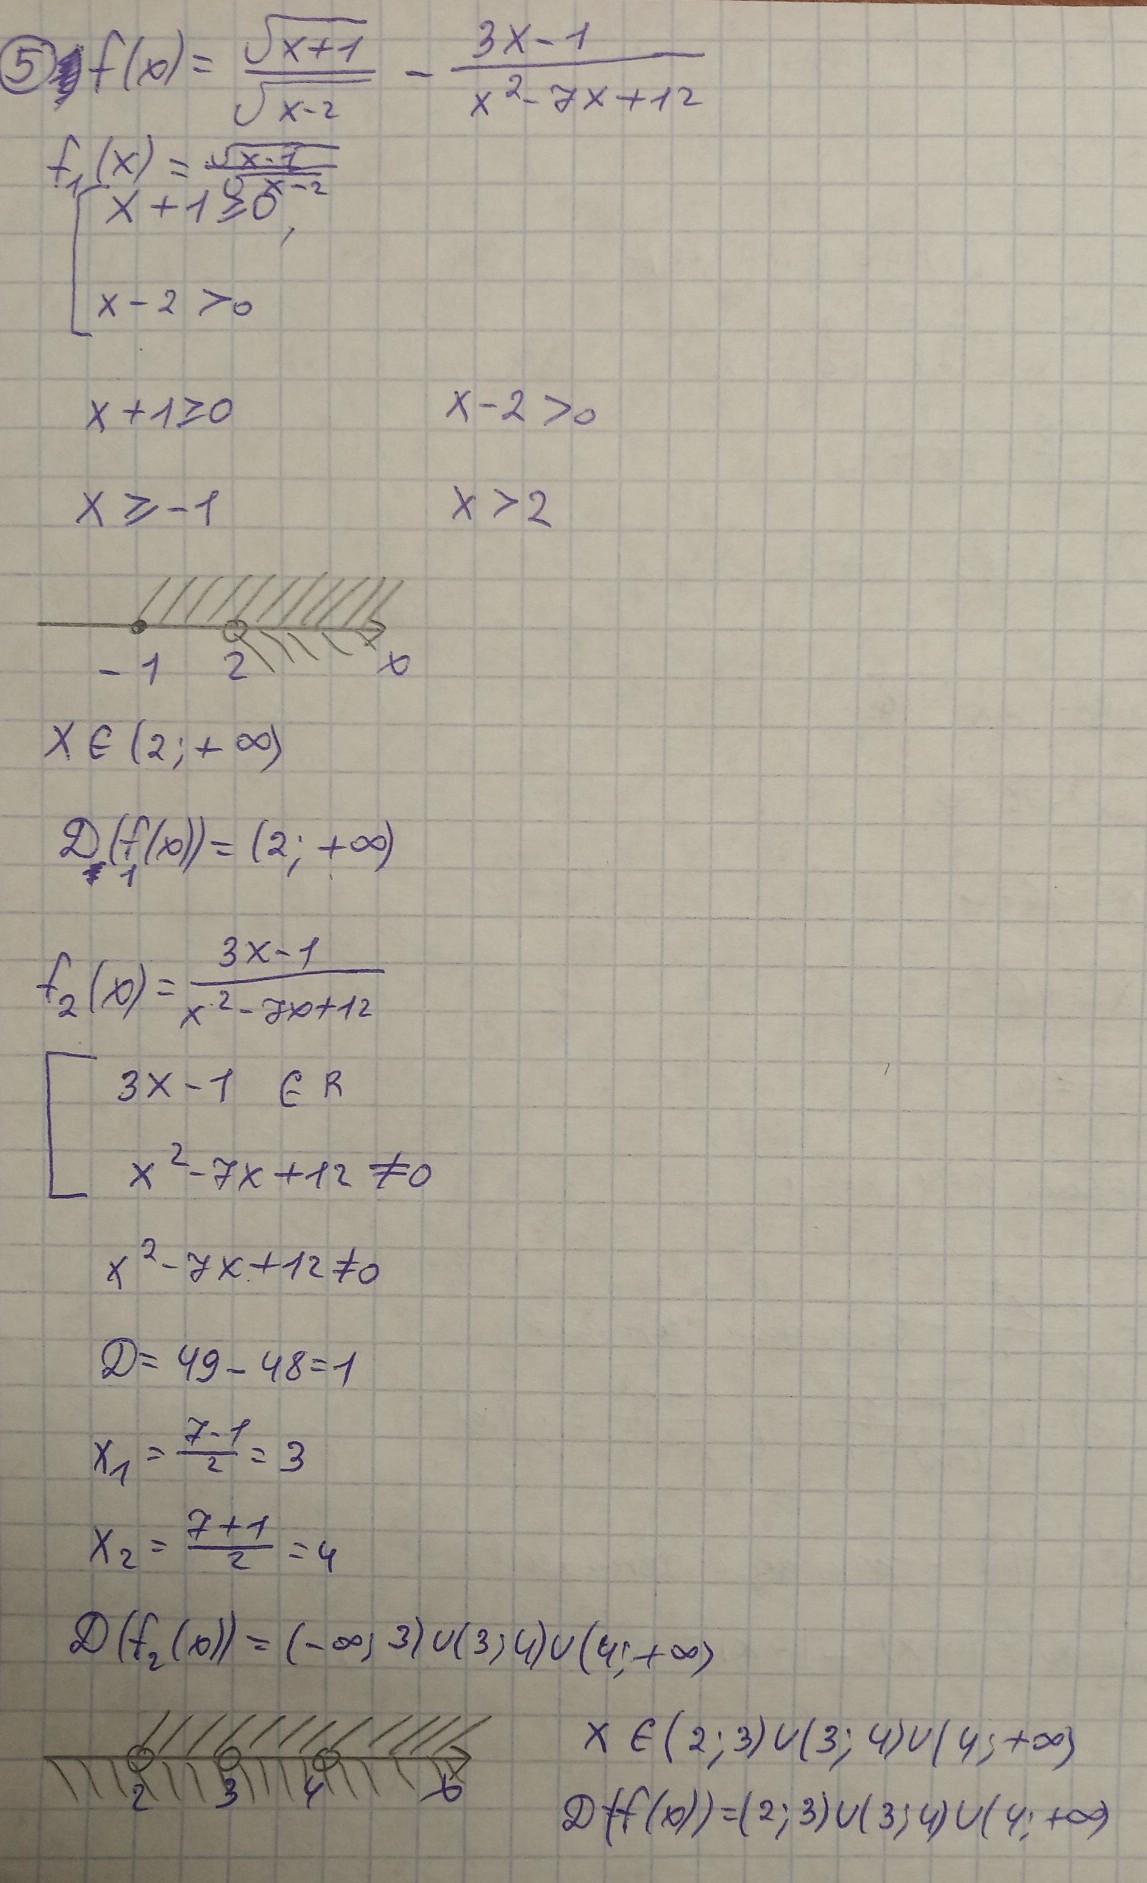 5 f(x) = √(x+1)/√(x-2) - (3x-1)/(x²-7x+12)
f₁(x) = √(x-1)/√(x-2)
[ x+1≥0,
x-2>0
x+1≥0 x-2>0
x≥-1 x>2
-1 2 x
x∈(2;+∞)
D(f₁(x))=(2;+∞)
f₂(x)=(3x-1)/(x²-7x+12)
[ 3x-1 ∈R
x²-7x+12≠0
x²-7x+12≠0
D=49-48=1
x₁=(7-1)/2=3
x₂=(7+1)/2=4
D(f₂(x))=(-∞;3)∪(3;4)∪(4;+∞)
2 3 4 x
x∈(2;3)∪(3;4)∪(4;+∞)
D(f(x))=(2;3)∪(3;4)∪(4;+∞)